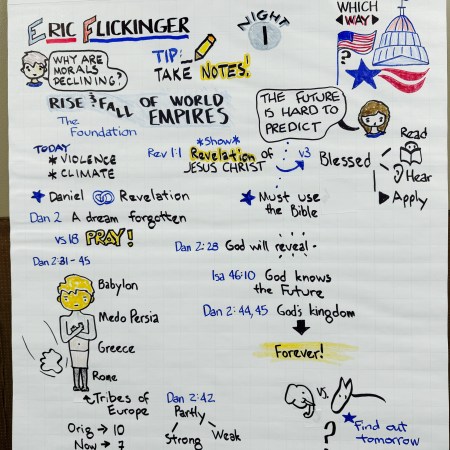 ERIC FLICKINGER
NIGHT
1
WHICH
WAY
TIP:
TAKE NOTES!
WHY ARE
MORALS
DECLINING?
RISE & FALL OF WORLD
EMPIRES
The
Foundation
THE FUTURE
IS HARD TO
PREDICT
TODAY
* VIOLENCE
* CLIMATE
*Show*
Rev 1:1 Revelation of
JESUS CHRIST
v3 Blessed
Read
Hear
Apply
Daniel Revelation
Must use
the Bible
Dan 2 A dream forgotten
vs 18 PRAY!
Dan 2:28 God will reveal
Dan 2:31-45
Isa 46:10 God knows
the Future
Dan 2:44,45 God's kingdom
Forever!
Babylon
Medo Persia
Greece
Rome
Tribes of
Europe
Orig → 10
Now → 7
Dan 2:42
Partly
Strong Weak
VS.
?
Find out
tomorrow